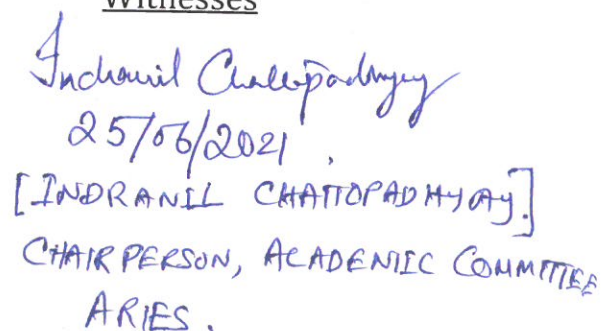 Witnesses
Indranil Chattopadhyay
25/06/2021.
[INDRANIL CHATTOPADHYAY.]
CHAIRPERSON, ACADEMIC COMMITTEE
ARIES.